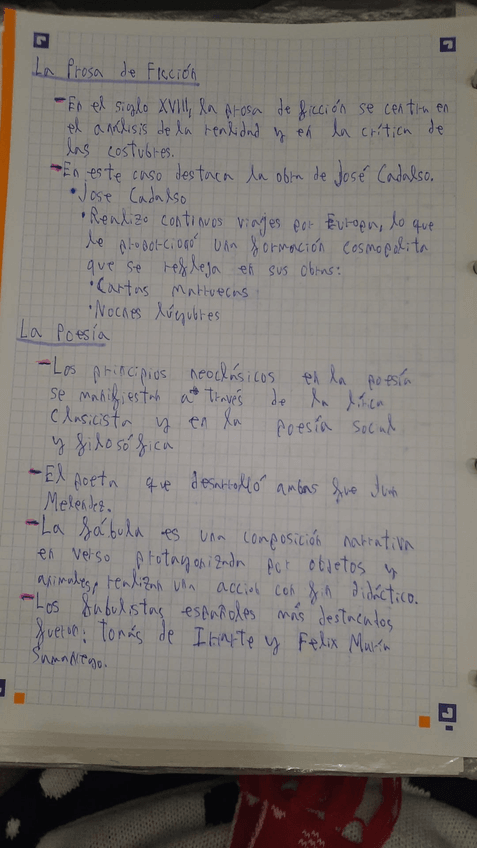 La Prosa de Ficción
- En el siglo XVIII, la prosa de ficción se centra en
el análisis de la realidad y en la crítica de
las costubres.
- En este caso destaca la obra de José Cadalso.
• Jose Cadalso
• Realizo continuos viajes por Europa, lo que
le proporcionó una formación cosmopolita
que se refleja en sus obras:
• Cartas Marruecas
• Noches lúgubres
La Poesía
- Los principios neoclásicos en la poesía
se manifiestan a través de la lírica
Clasicista y en la poesía social
y filosófica
- El poeta que desarrolló ambas fue Juan
Melendez.
- La fábula es una composición narrativa
en verso protagonizada por objetos y
animales, realizan una acción con fin didáctico.
- Los fabulistas españoles más destacados
fueron: tomás de Iriarte y Felix María
Samaniego.